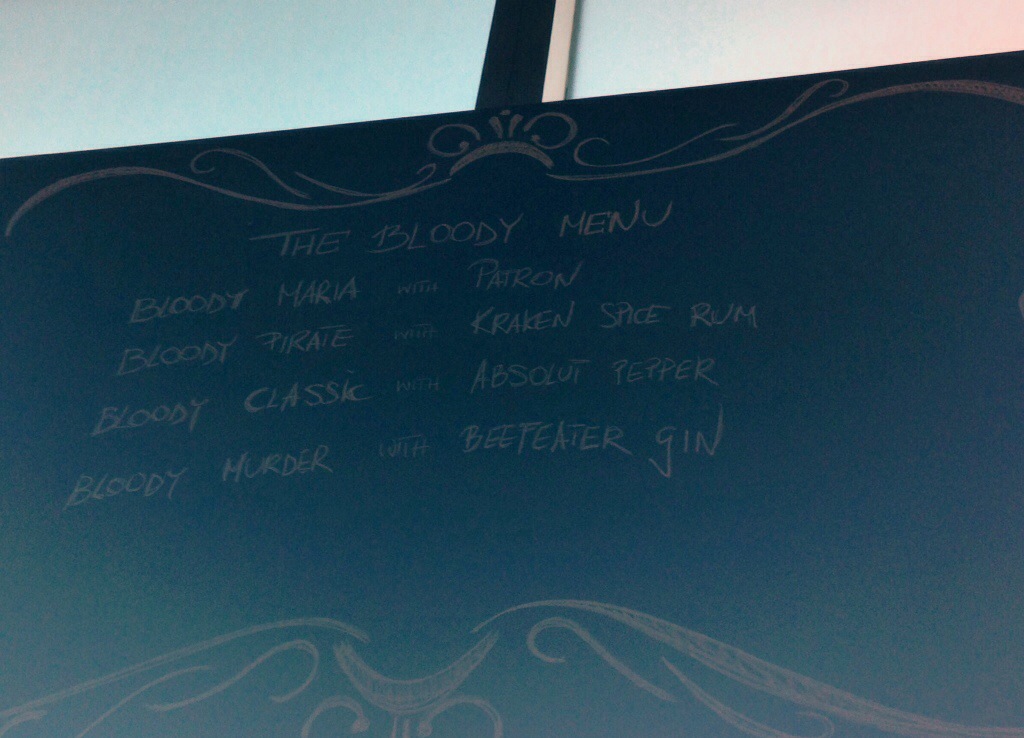 THE BLOODY MENU
BLOODY MARIA WITH PATRON
BLOODY PIRATE WITH KRAKEN SPICE RUM
BLOODY CLASSIC WITH ABSOLUT PEPPER
BLOODY MURDER WITH BEEFEATER GIN